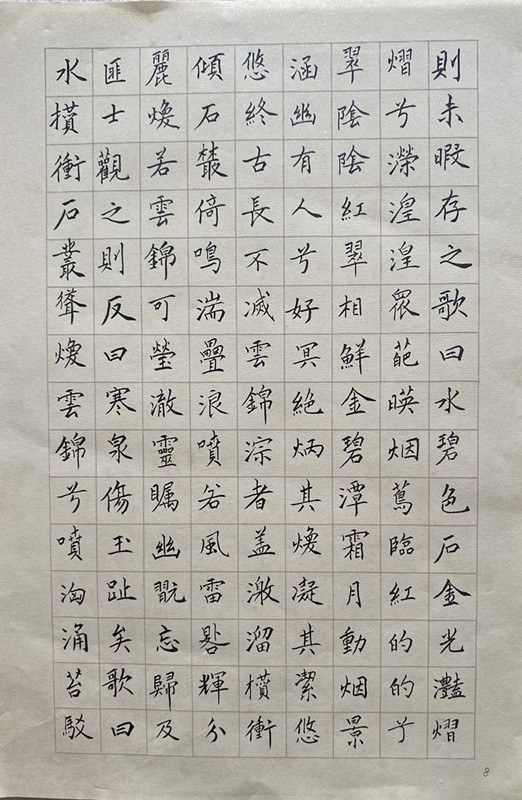 則未暇存之歌曰水碧色石金光灩熠
熠兮濚湟湟眾葩暎烟蔦臨紅的的兮
翠陰陰紅翠相鮮金碧潭霜月動烟景
涵幽有人兮好冥絕炳其煥凝其潔悠
悠終古長不滅雲錦淙者盖激溜攢衝
傾石叢倚鳴湍疊浪噴若風雷輝分
麗煥若雲錦可瑩澈靈矚幽翫忘歸及
匪士觀之則反曰寒泉傷玉趾矣歌曰
水攢衝石叢聳煥雲錦兮噴洶涌苔駁
8